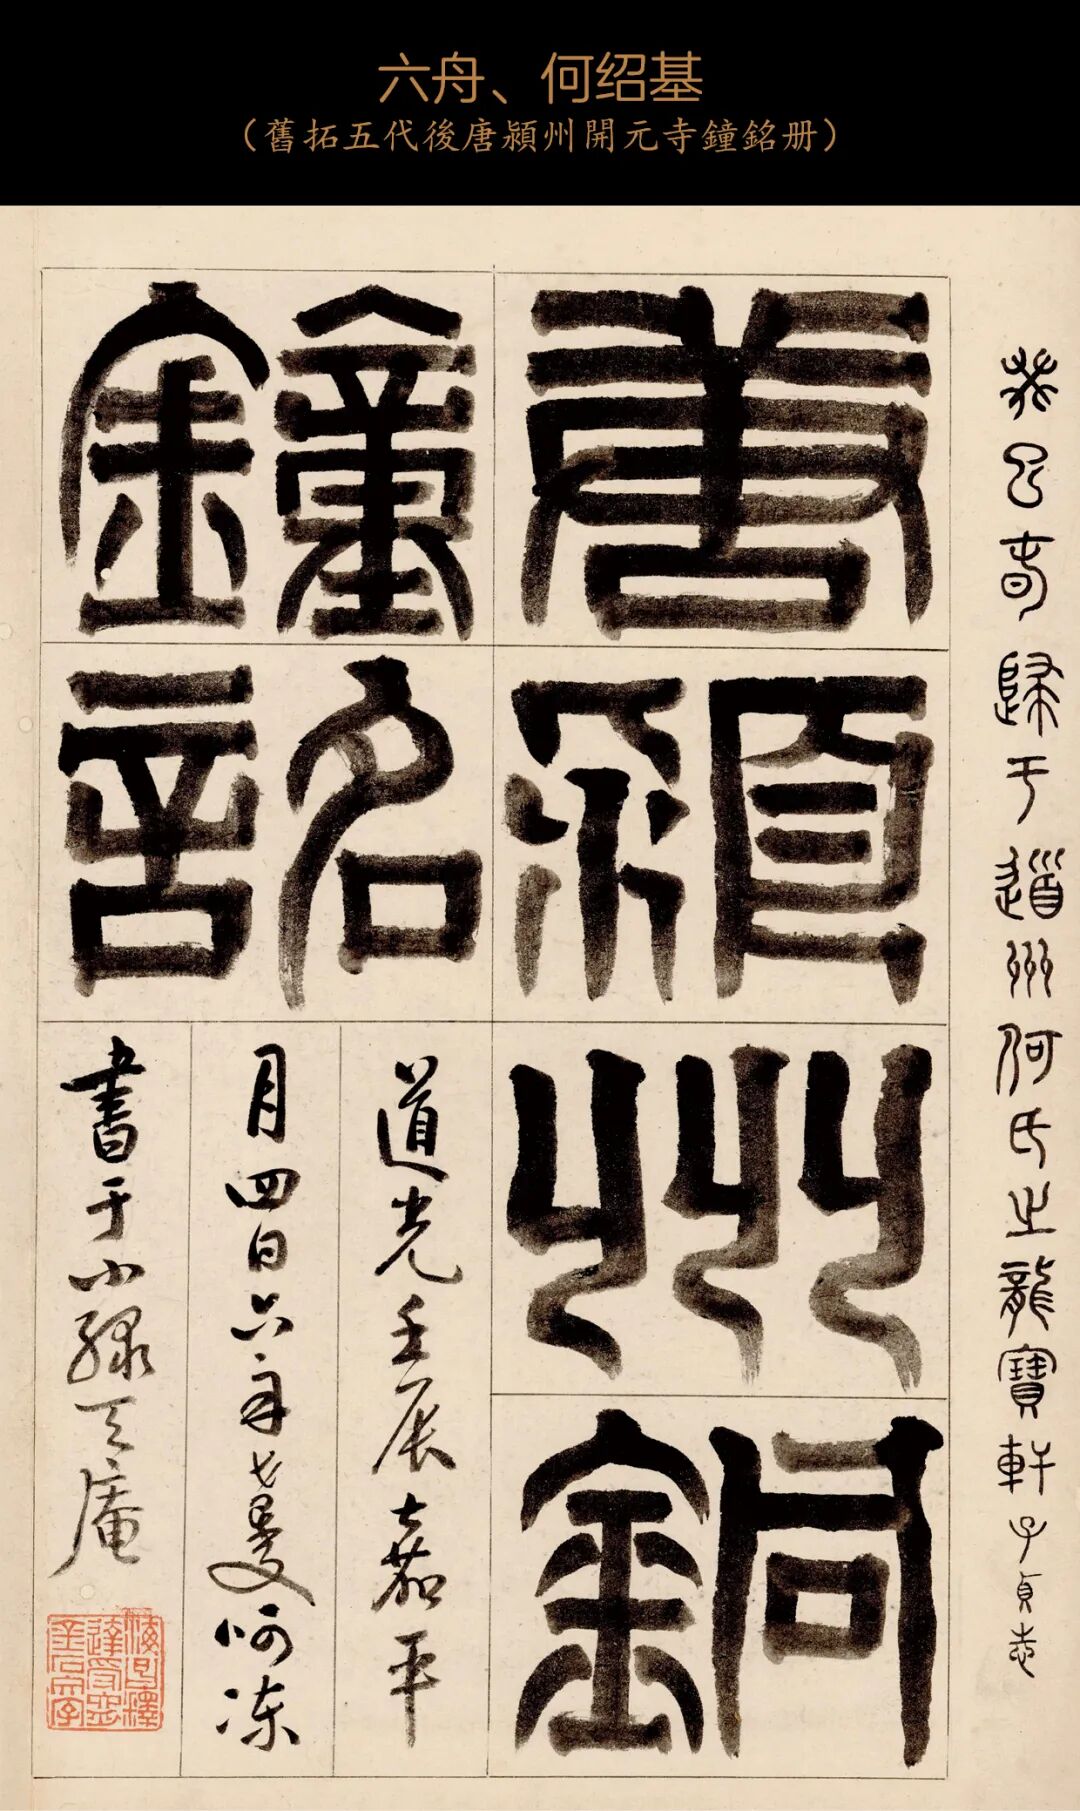 六舟、何绍基
（舊拓五代後唐潁州開元寺鐘銘册）
癸巳春歸于道州何氏之龍寶軒子貞志
唐潁州銅
鐘銘
道光壬辰嘉平
月四日六舟受呵凍
書于小綠天庵